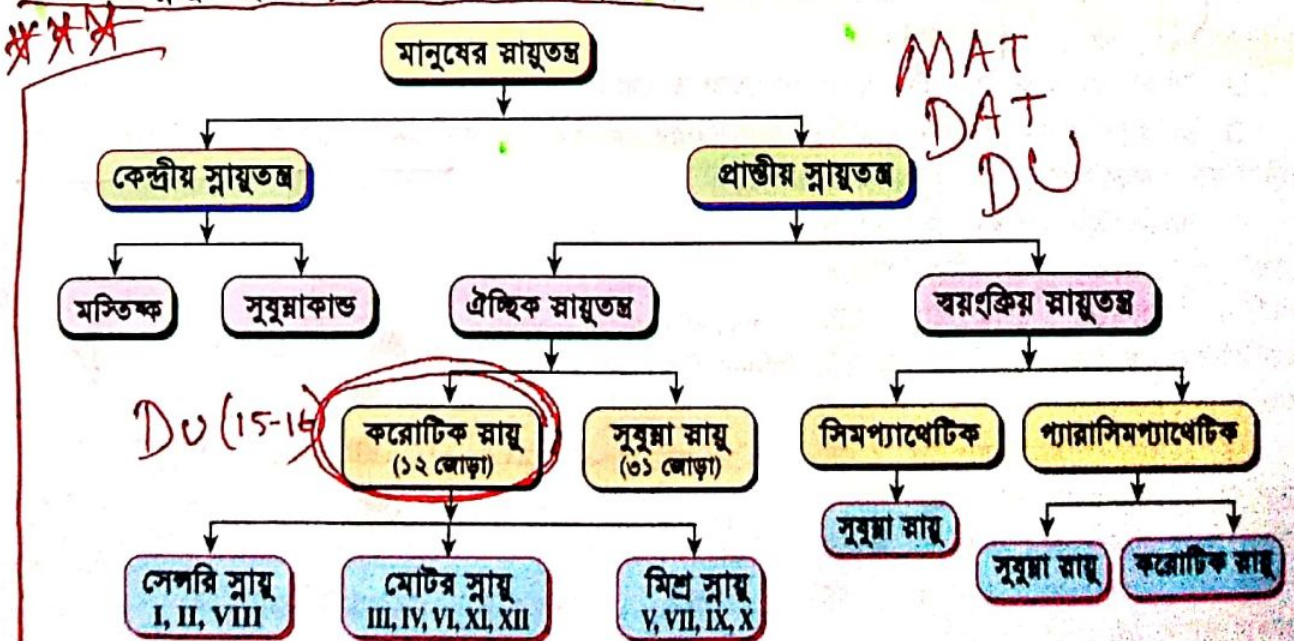 মানুষের স্নায়ুতন্ত্র
MAT
DAT
DU
কেন্দ্রীয় স্নায়ুতন্ত্র
প্রান্তীয় স্নায়ুতন্ত্র
মস্তিষ্ক
সুষুম্নাকান্ড
ঐচ্ছিক স্নায়ুতন্ত্র
স্বয়ংক্রিয় স্নায়ুতন্ত্র
DU (15-16)
করোটিক স্নায়ু
(১২ জোড়া)
সুষুম্না স্নায়ু
(৩১ জোড়া)
সিমপ্যাথেটিক
প্যারাসিমপ্যাথেটিক
সুষুম্না স্নায়ু
সুষুম্না স্নায়ু
করোটিক স্নায়ু
সেন্সরি স্নায়ু
I, II, VIII
মোটর স্নায়ু
III, IV, VI, XI, XII
মিশ্র স্নায়ু
V, VII, IX, X